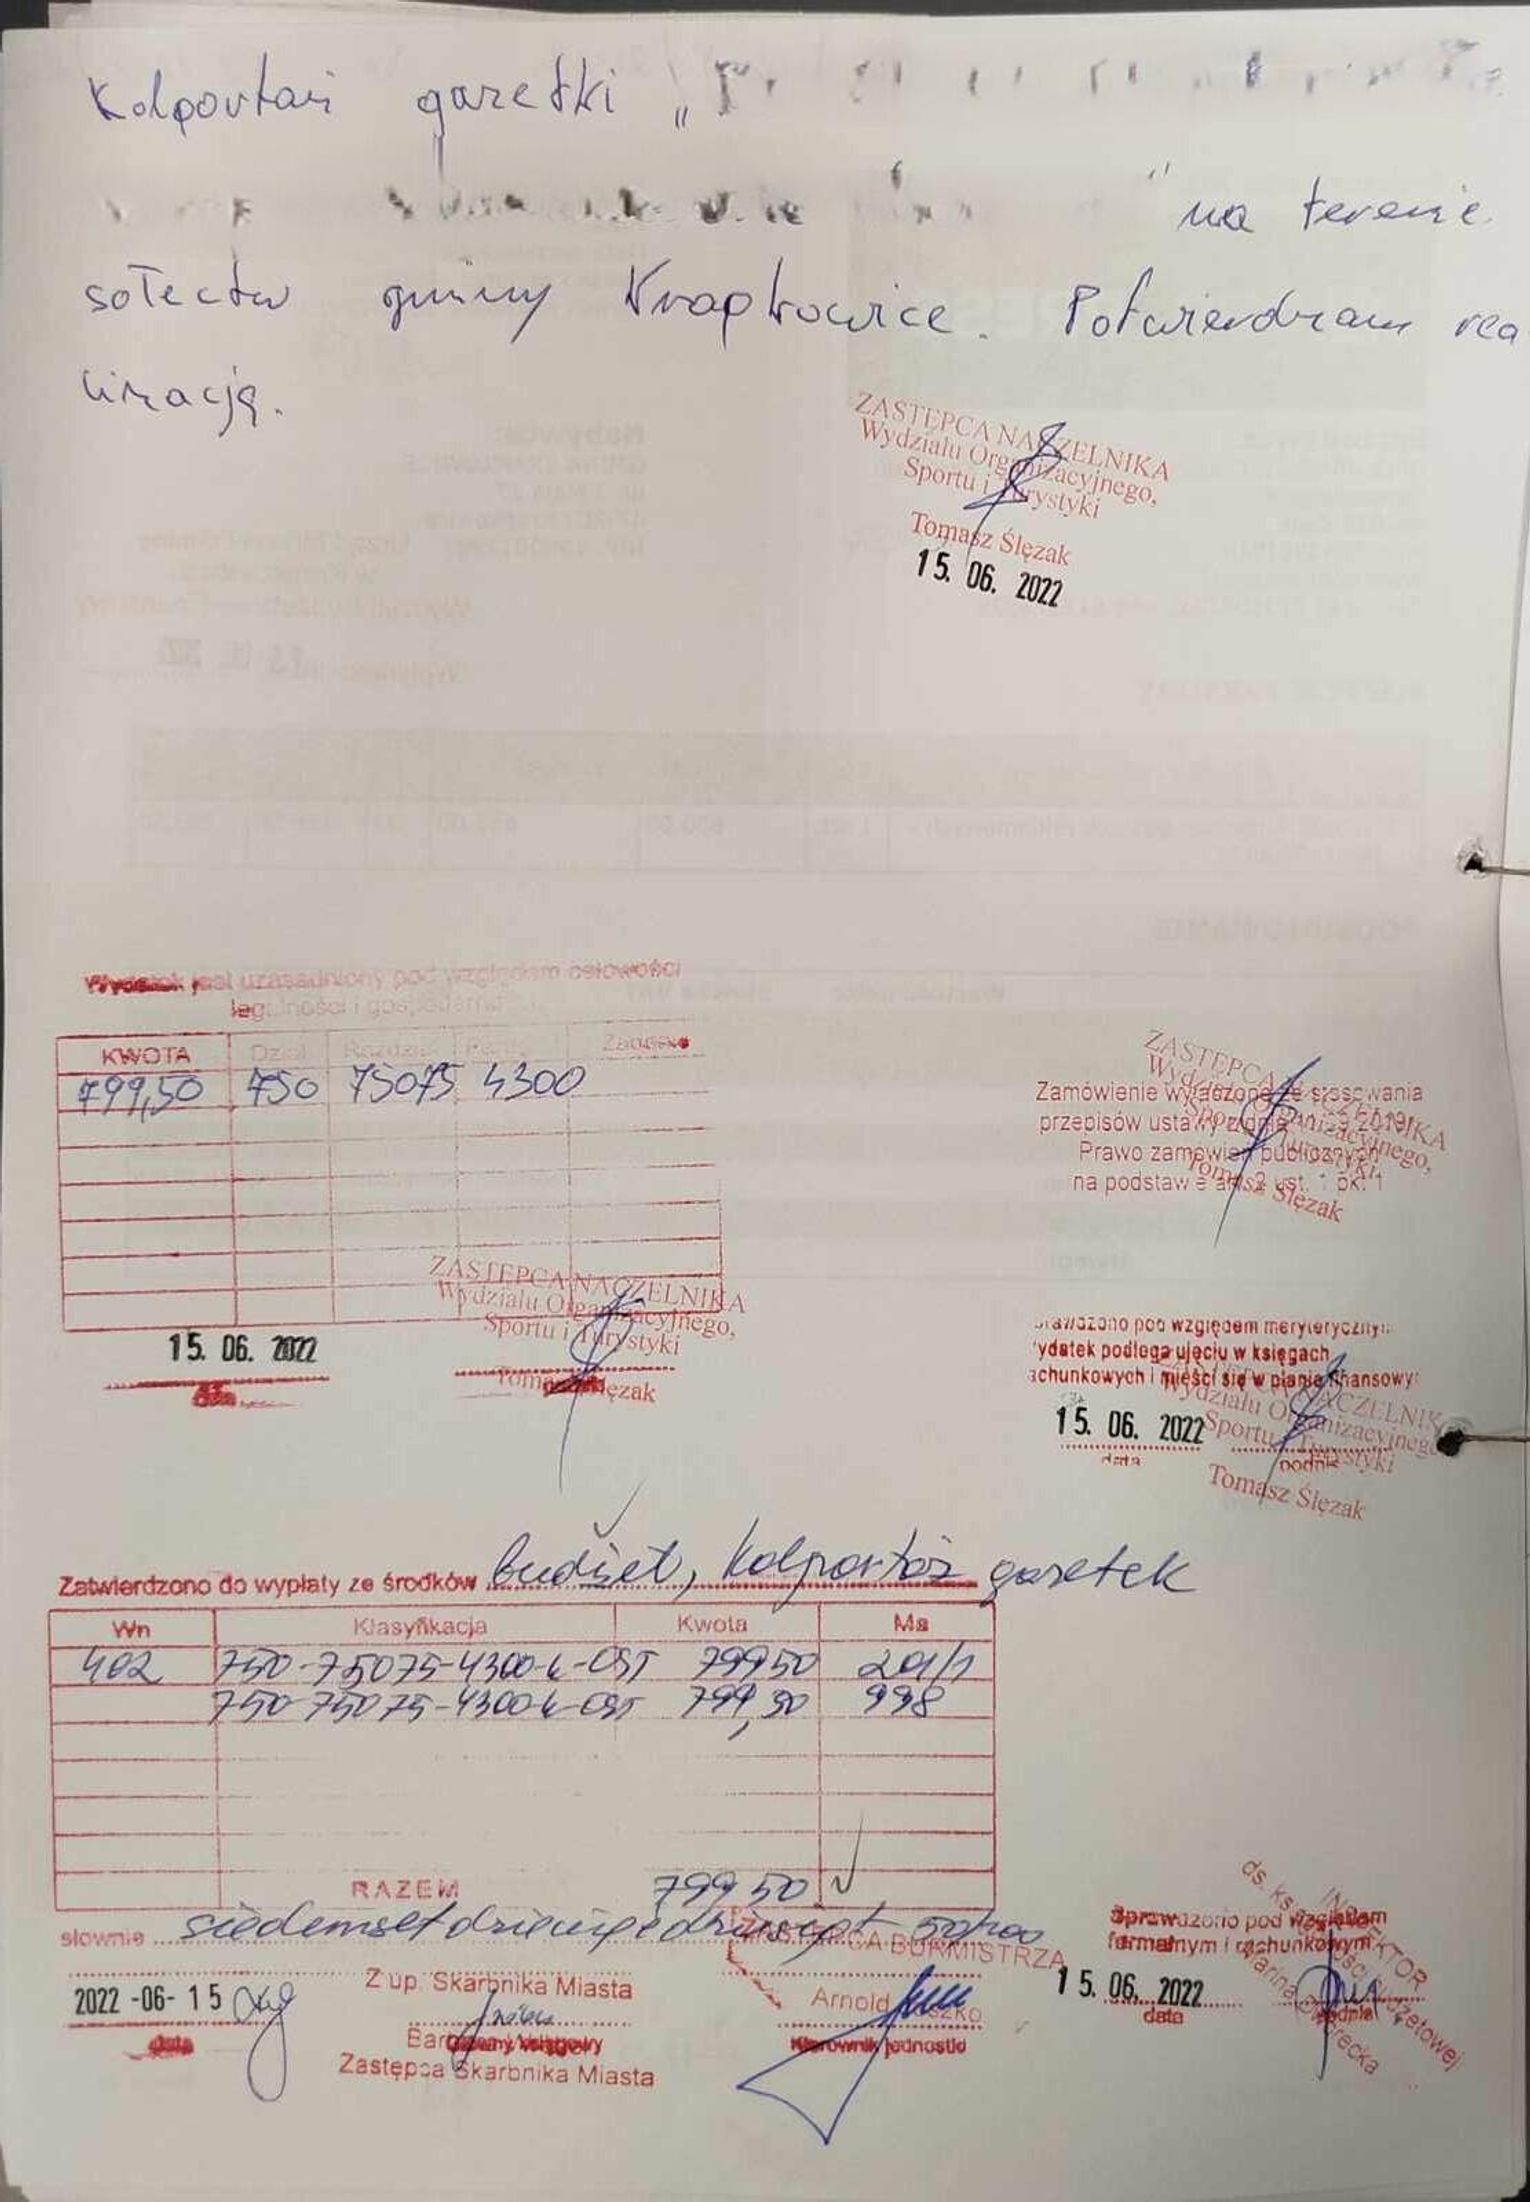 Kolportaż gazetki „
" na terenie
sołectw gminy Krapkowice. Potwierdzam rea
lizację.
ZASTĘPCA NACZELNIKA
Wydziału Organizacyjnego,
Sportu i Turystyki
Tomasz Ślęzak
15. 06. 2022
Wydatek jest uzasadniony pod względem celowości
legalności i
KWOTA Dział Rozdział Zadanie
799,50 750 75075 4300
ZASTĘPCA NACZELNIKA
Wydziału Organizacyjnego,
Sportu i Turystyki
Tomasz Ślęzak
15. 06. 2022
data
ZASTĘPCA NACZELNIKA
Wydziału Organizacyjnego,
Sportu i Turystyki
Tomasz Ślęzak
Zamówienie wyłączone ze stosowania
przepisów ustawy z dnia 11.09.2019r
Prawo zamówień publicznych
na podstawie art. 2 ust. 1 pkt 1
prawdzono pod względem merytorycznym
ydatek podlega ujęciu w księgach
achunkowych i mieści się w planie finansowy
ZASTĘPCA NACZELNIK
Wydziału Organizacyjnego
Sportu i Turystyki
Tomasz Ślęzak
15. 06. 2022
data podpis
Zatwierdzono do wypłaty ze środków budżet, kolportaż gazetek
Wn Klasyfikacja Kwota Ma
402 750-75075-4300-6-OST 79950 201/1
750-75075-4300-6-OST 799,50 998
RAZEM 799 50
słownie siedemset dziewięćdziesiąt 50/100
2022 -06- 15
data
Z up. Skarbnika Miasta
Główny księgowy
Zastępca Skarbnika Miasta
ZASTĘPCA BURMISTRZA
Arnold
Kierownik jednostki
Sprawdzono pod względem
formalnym i rachunkowym
15. 06. 2022
data podpis
INSPEKTOR
ds. księgowości budżetowej